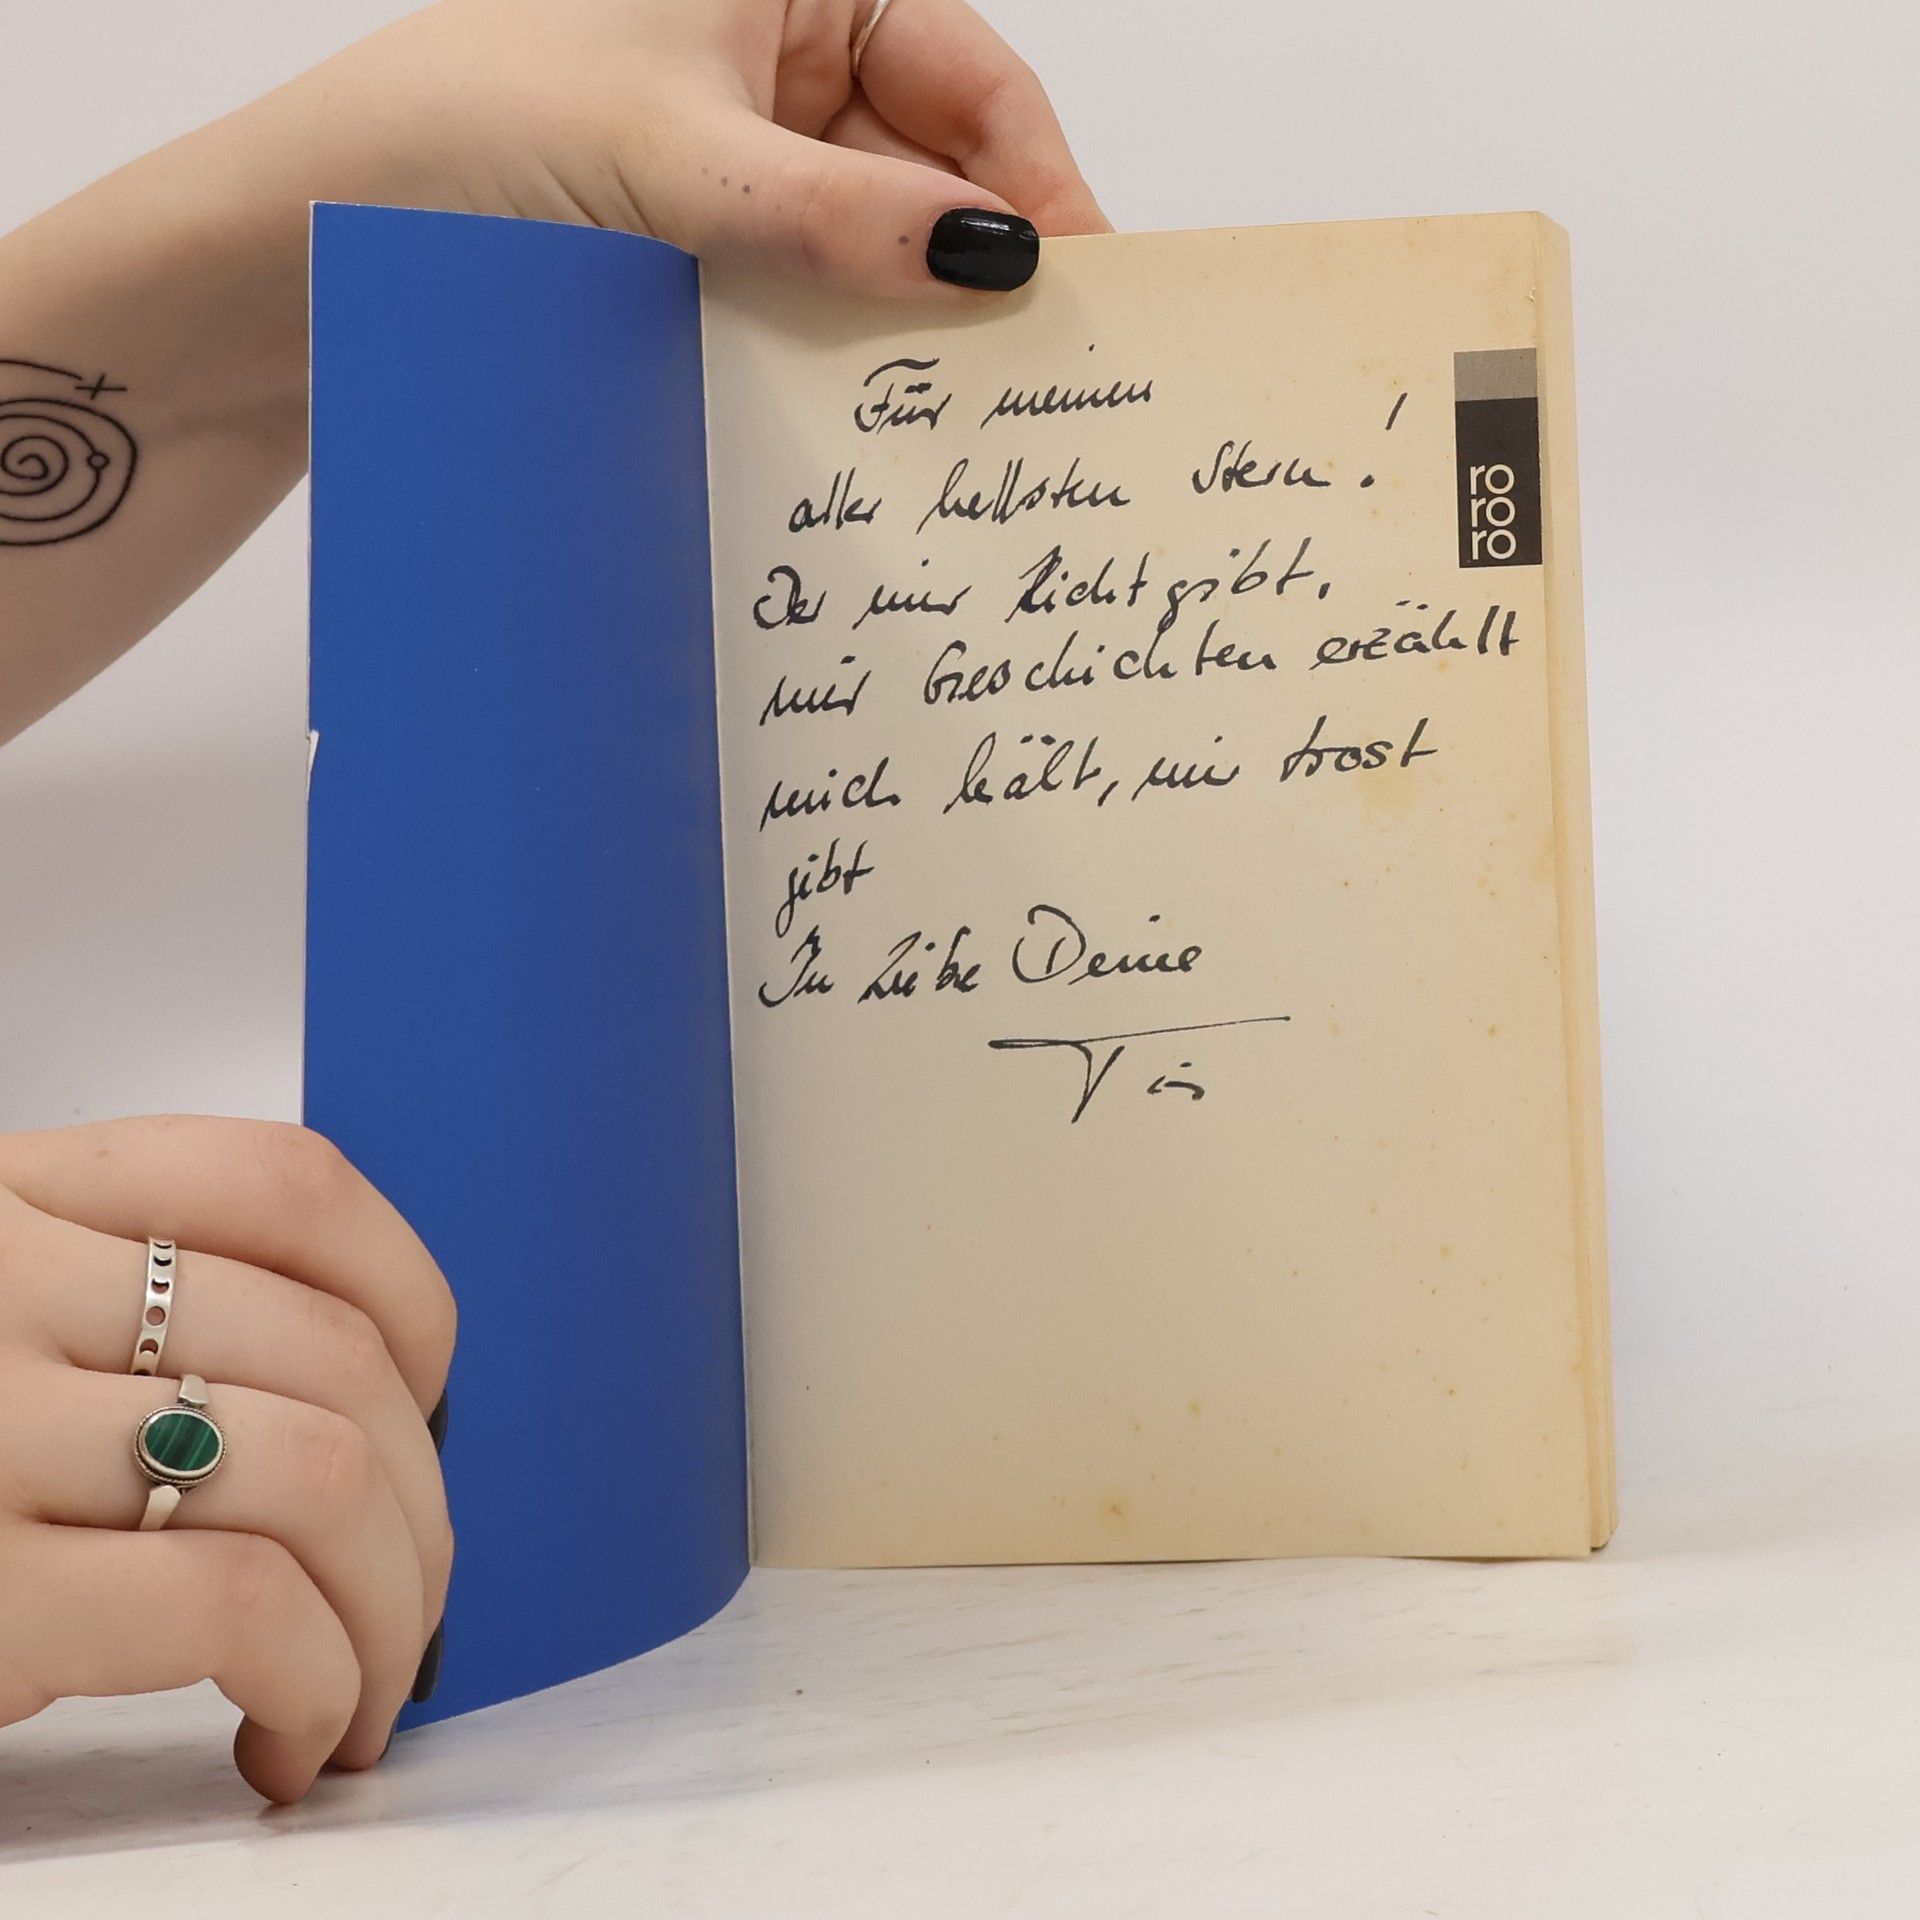 Für meinen
aller hellsten Stern!
Der mir Licht gibt,
mir Geschichten erzählt
mich hält, mir trost
gibt
In Liebe Deine
ro
ro
ro